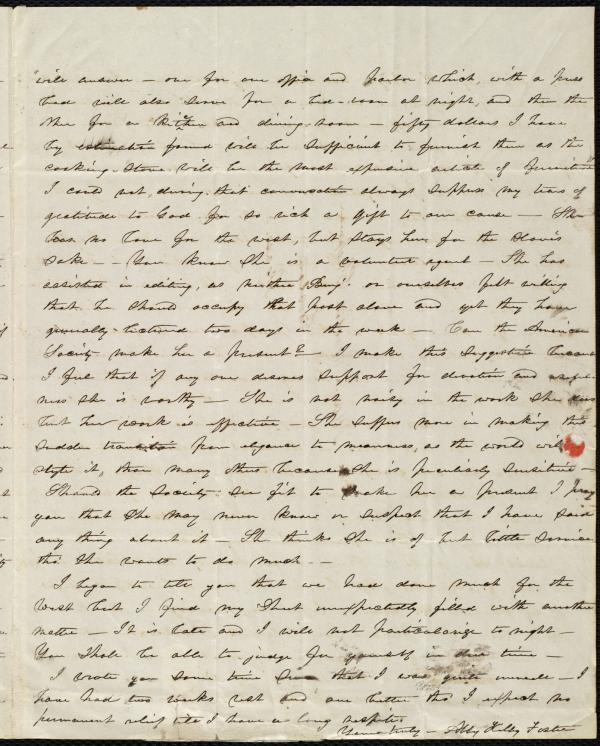 will answer — one for our office and parlor which, with a press
bed will also serve for a bed-room at night, and the
other for a kitchen and dining-room — fifty dollars I have
by found will be sufficient to furnish them as the
cooking-stove will be the most expensive article of furniture"
I could not, during that conversation always suppress my tears of
gratitude to God for so rich a gift to our cause — She
has no love for the west, but stays here for the slave's
sake — You know she is a volunteer agent — She has
assisted in editing, as neither Benj. or ourselves felt willing
that he should occupy that post alone and yet they have
generally lectured two days in the week — Can the American
Society make her a present? I make this suggestion because
I feel that if any one deserves support for devotion and
ness she is worthy — She is not noisy in the work she does
but her work is effective — She suffers more in making this
sudden transition from elegance to meanness, as the world will
style it, than many others because she is peculiarly sensitive —
Should the Society see fit to make her a present I pray
you that she may never know or suspect that I have said
any thing about it — She thinks she is of but little service
tho' she wants to do much —
I began to tell you that we had done much for the
West but I find my sheet unexpectedly filled with another
matter — It is late and I will not particularize to night —
You shall be able to judge for yourself in due time —
I wrote you some time since that I was quite unwell — I
have had two weeks rest and am better tho' I expect no
permanent relief till I have a long respite
Yours truly — Abby Kelley Foster